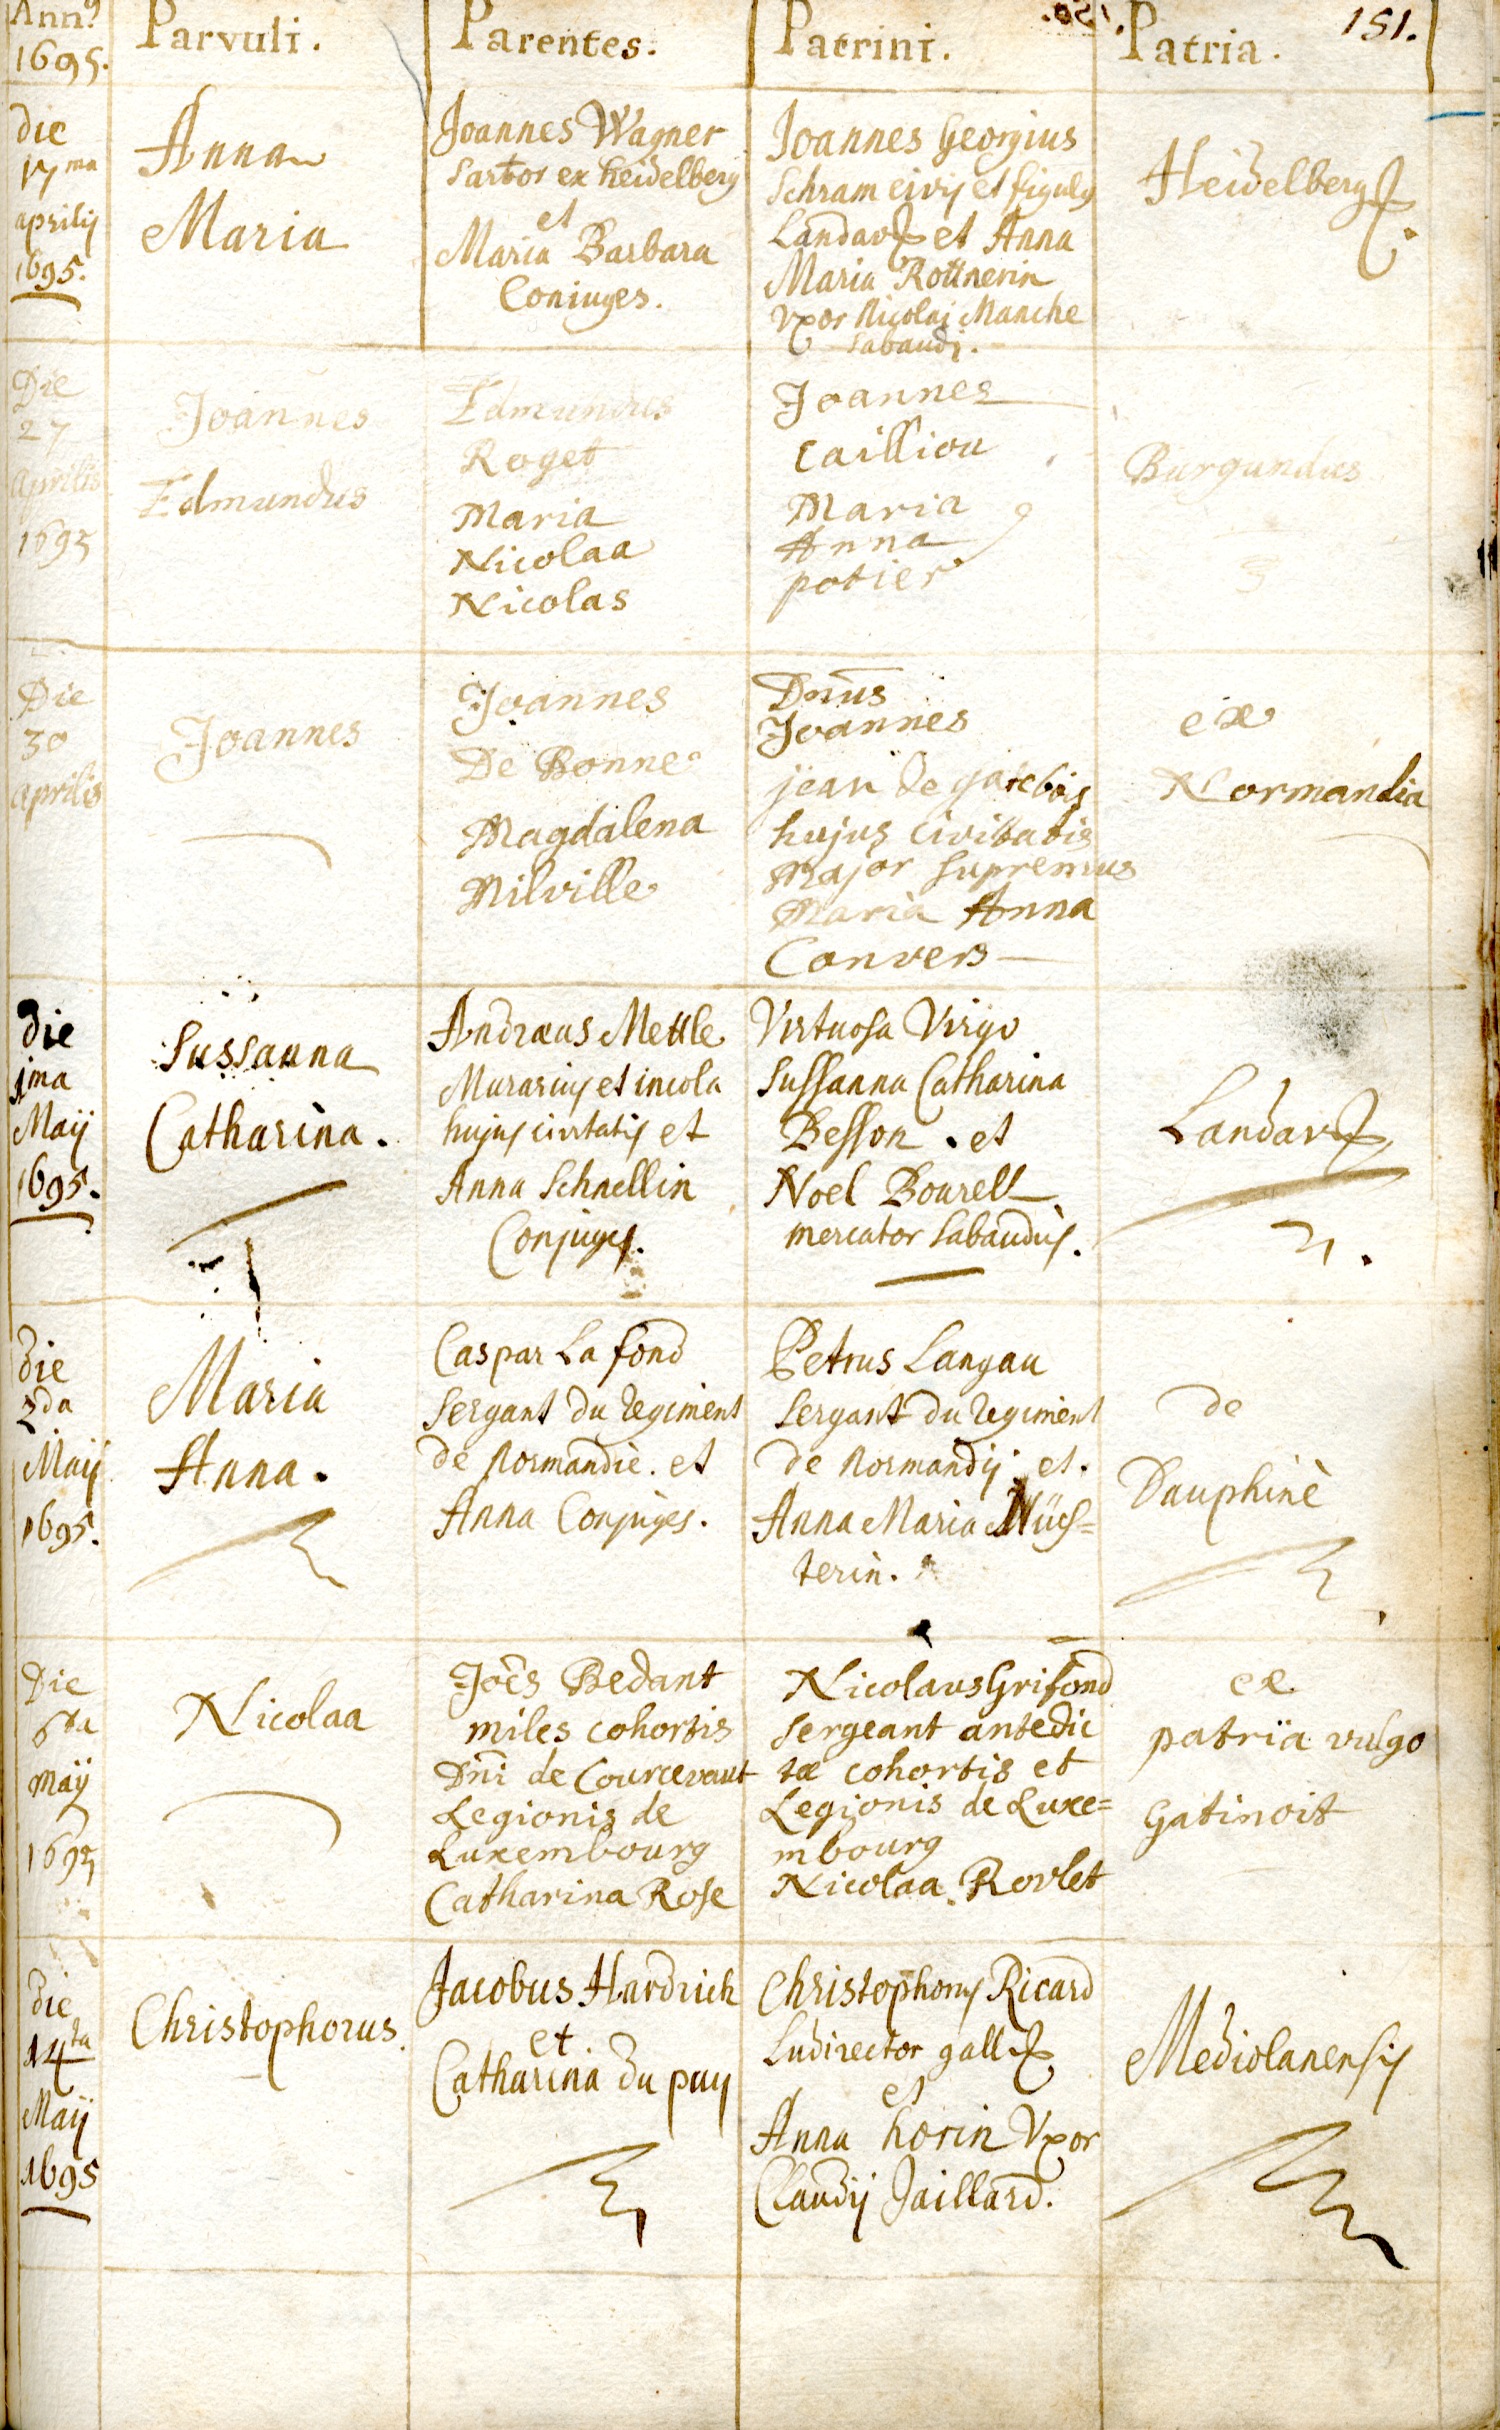 Ann9 1695. Parvuli. Parentes. Patrini. Patria. 151.
die
17ma
aprilis
1695.
Anna
Maria
Joannes Wagner
Sartor ex heidelberg
et
Maria Barbara
Coniuges.
Joannes Georgius
Schram civis et figulus
Landavæ et Anna
Maria Rottnerin
Vxor Nicolai Manche
Sabaudi.
Heidelbergæ.
Die
27
aprilis
1695
Joannes
Edmundus
Edmundus
Roget
Maria
Nicolaa
Nicolas
Joannes
Cailliou
Maria
Anna
potier
Burgundus
Die
30
aprilis
Joannes
Joannes
De Bonne
Magdalena
Milville
Dnus
Joannes
jean de
hujus Civitatis
Major Supremus
Maria Anna
Convers
ex
Normandia
die
1ma
Maij
1695.
Sussanna
Catharina.
Andræus Mettle
Murarius et incola
hujus civitatis et
Anna Schnellin
Conjuges.
Virtuosa Virgo
Sussanna Catharina
Besson. et
Noel Bourell
mercator Sabaudus.
Landavæ
die
2da
Maij
1695.
Maria
Anna.
Caspar La fond
Sergant du regiment
de Normandie. et
Anna Conjuges.
Petrus Langau
Sergant du regiment
de Normandij et.
Anna Maria Müs=
terin.
de
Dauphinè
Die
6ta
maij
1695
Nicolaa
Joes Bedant
miles cohortis
Dni de Courcevaut
Legionis de
Luxembourg
Catharina Rose
Nicolaus Grifond
Sergeant antedic
tæ cohortis et
Legionis de Luxe=
mbourg
Nicolaa Rovlet
ex
patria vulgo
Gatinoit
die
14ta
Maij
1695
Christophorus.
Jacobus Hardrich
et
Catharina du puy
Christophorus Ricard
Ludirector gallæ
et
Anna horin Vxor
Claudij Jaillard.
Mediolanensis